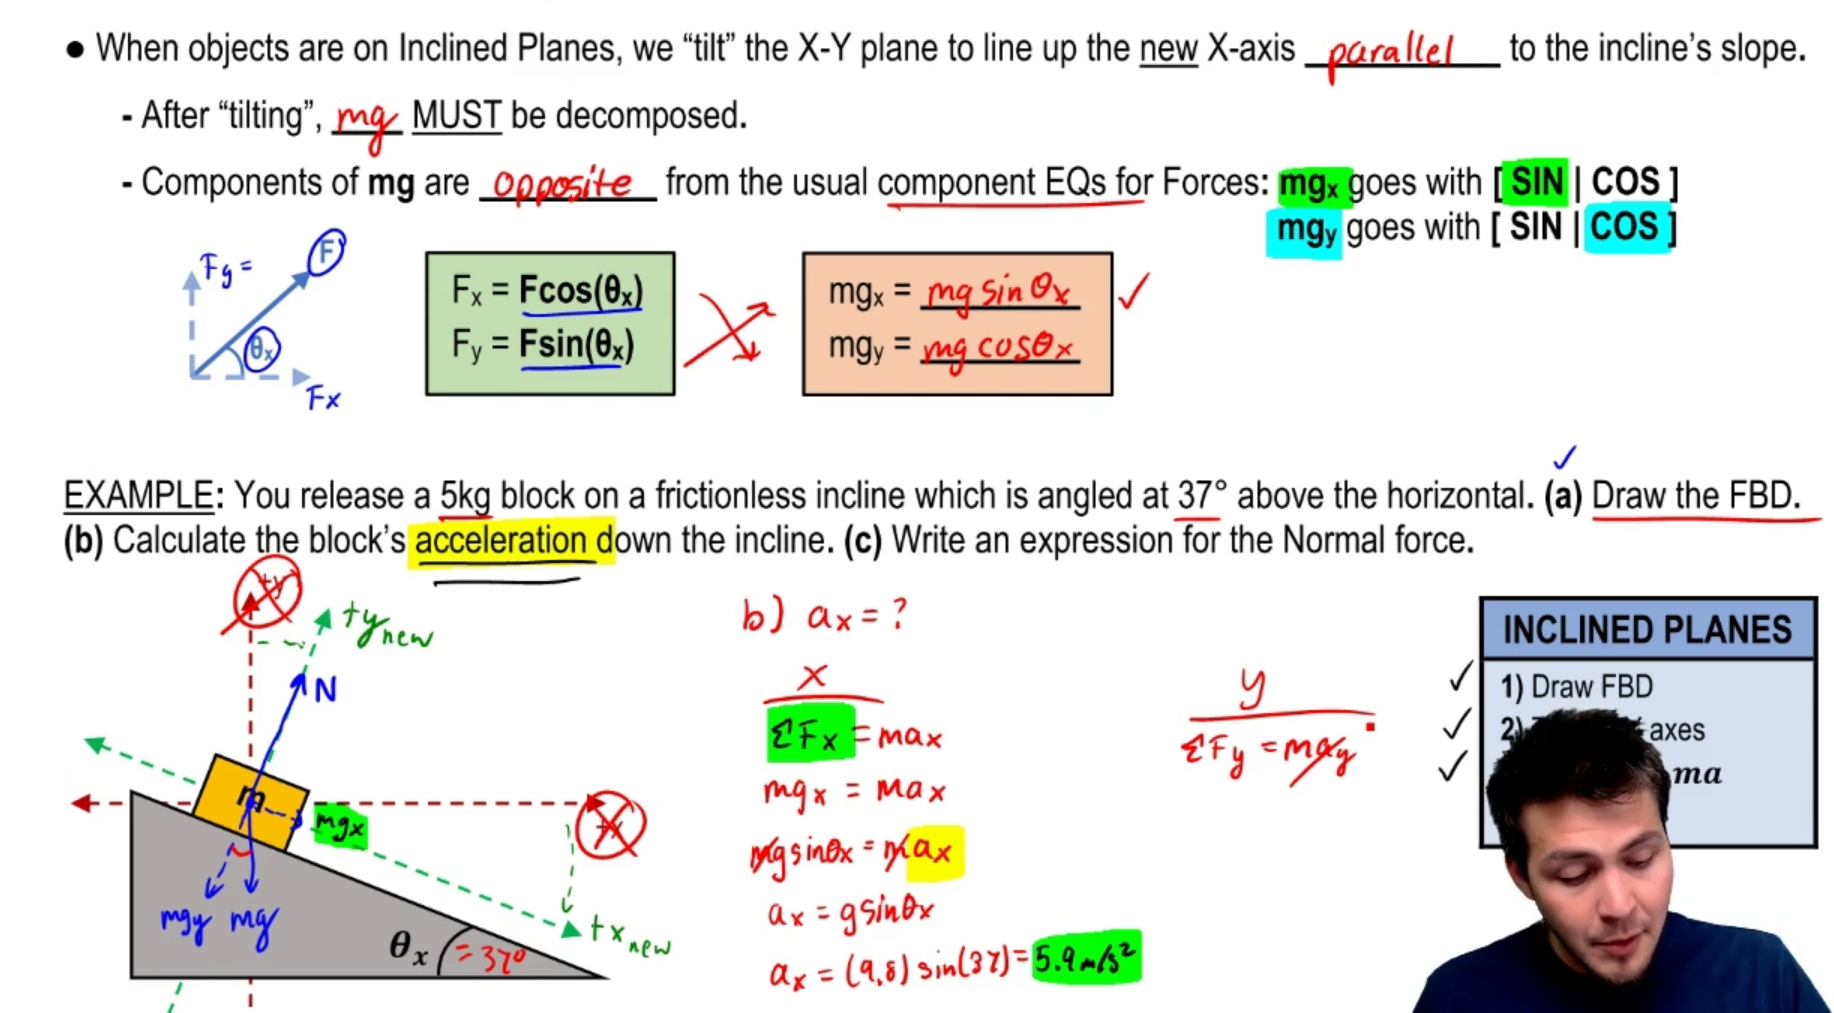 ● When objects are on Inclined Planes, we “tilt” the X-Y plane to line up the new X-axis parallel to the incline’s slope.
- After “tilting”, mg MUST be decomposed.
- Components of mg are opposite from the usual component EQs for Forces: mgx goes with [ SIN | COS ]
mgy goes with [ SIN | COS ]
Fy =
F
θx
Fx
Fx = Fcos(θx)
Fy = Fsin(θx)
mgx = mg sin θx
mgy = mg cosθx
EXAMPLE: You release a 5kg block on a frictionless incline which is angled at 37° above the horizontal. (a) Draw the FBD.
(b) Calculate the block’s acceleration down the incline. (c) Write an expression for the Normal force.
+y
+y new
N
m
mgx
+x
mgy mg
θx = 37°
+x new
b) ax = ?
x
ΣFx = max
mgx = max
mgsinθx = max
ax = gsinθx
ax = (9.8) sin(37) = 5.9 m/s²
y
ΣFy = may
INCLINED PLANES
1) Draw FBD
2) axes
ma